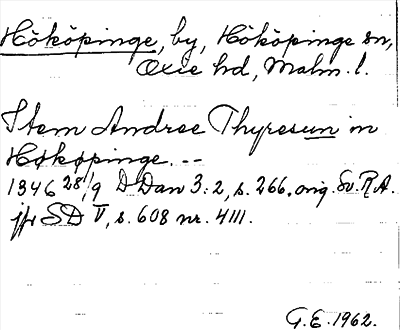 Hököpinge, by, Hököpinge sn,
Oxie hd, Malm. l.
Item Andree Thyresun in
Høkøpinge. --
1346 28/9 D Dan 3:2, s. 266. orig. Sv. R.A.
jfr SD V, s. 608 nr. 4111.
G.E. 1962.